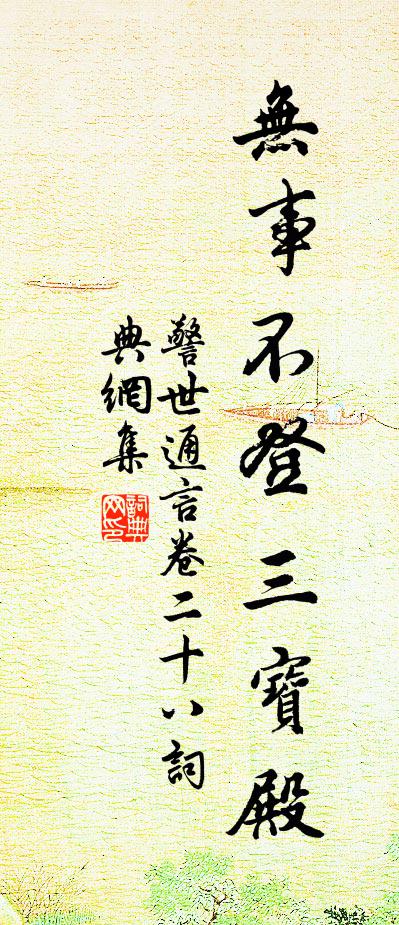 無事不登三寶殿
警世通言卷二十八詞
典網集
詞典網印